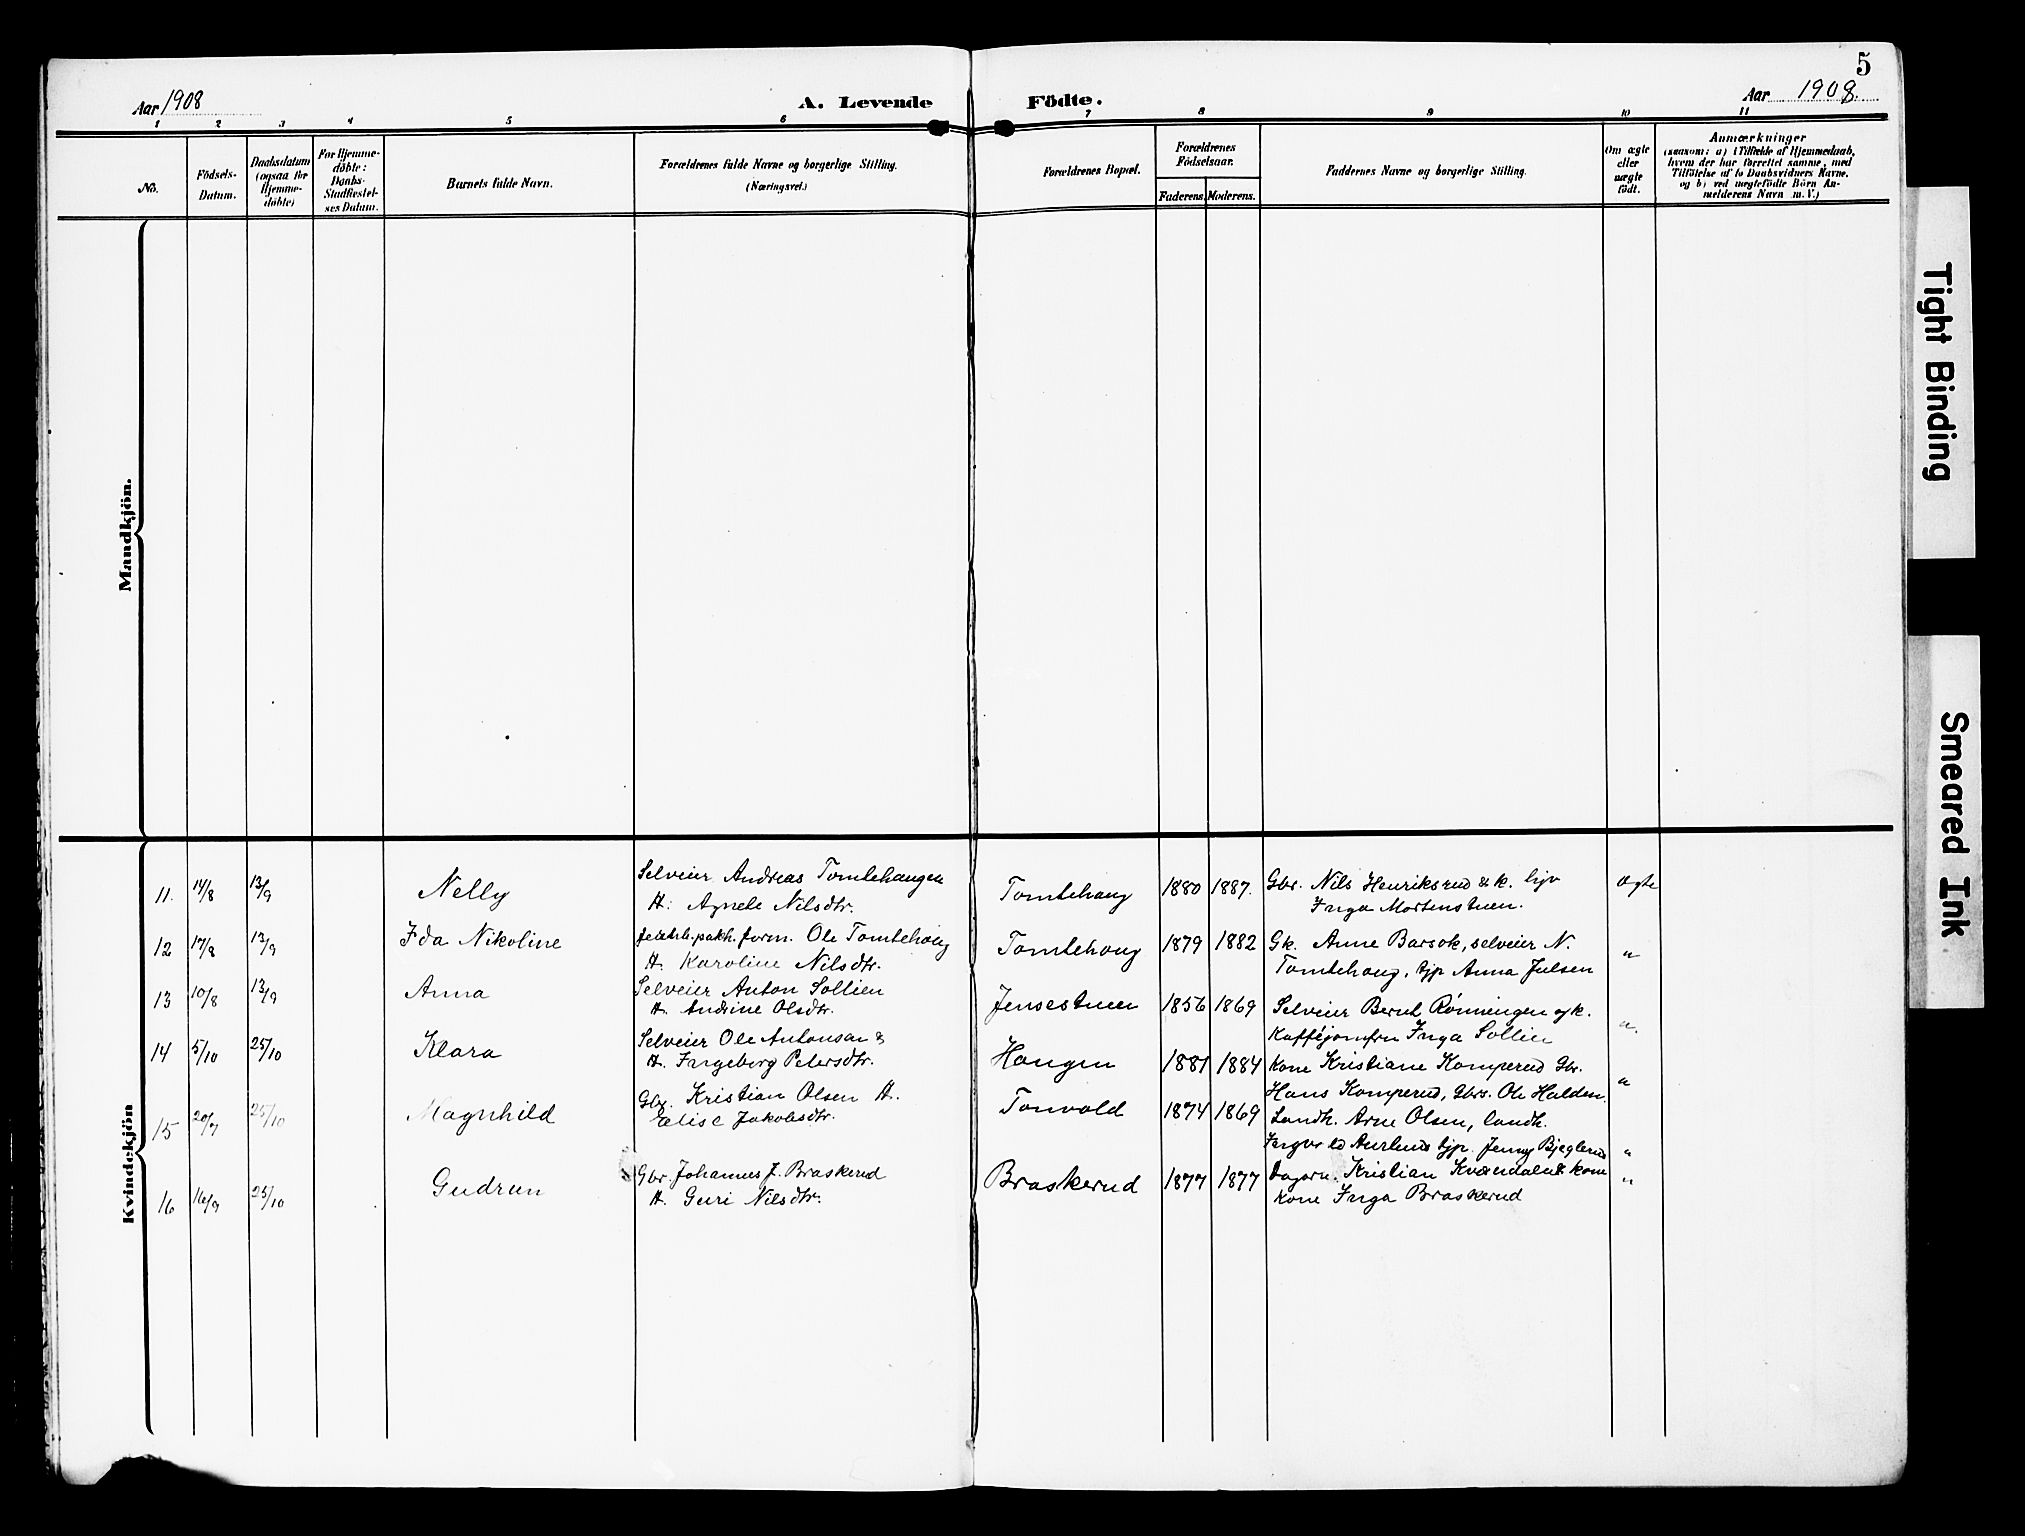 5
Aar 1908
A. Levende
Födte.
Aar 1908.
1 2 3 4 5 6 7 8 9 10 11
No.
Födsels-
Datum.
Daabsdatum
(ogsaa for
Hjemme-
döbte)
For Hjemme-
döbte:
Daabs-
Stadfæstel-
ses Datum.
Barnets fulde Navn.
Forældrenes fulde Navne og borgerlige Stilling.
(Næringsvei.)
Forældrenes Bopæl.
Forældrenes
Födselsaar.
Faderens. Moderens.
Faddernes Navne og borgerlige Stilling.
Om ægte
eller
uægte
födt.
Anmærkninger
(saasom: a) i Tilfælde af Hjemmedaab,
hvem der har forrettet samme, med
Tilföielse af to Daabsvidners Navne.
og b) ved uægtefödte Börn An-
melderens Navn m. V.)
Mandkjön.
Kvindekjön
11. 14/8 13/9 Nelly
Selveier Andreas Tomtehaugen
H. Agnete Nilsdtr.
Tomtehaug 1880 1887.
Gbr. Nils Henriksrud & k.
Inga Mortenstuen.
Ægte
12 17/8 13/9 Ida Nikoline
form. Ole Tomtehoug
H. Karoline Nilsdtr.
Tomtehoug 1879 1882
Gk. Anne Barsok, selveier N.
Tomtehoug, tjp Anna Julsen
"
13 10/8 13/9 Anna
Selveier Anton Sollien
H. Andrine Olsdtr.
Jensestuen 1856 1869
Selveier Bernt Rønningen og k.
Kafféjomfru Inga Sollien
"
14 5/10 25/10 Klara
Selveier Ole Antonsen &
H. Ingeborg Petersdtr.
Haugen 1881 1884
Kone Kristiane Komperud Gbr.
Hans Komperud, Gbrs. Ole Halden.
"
15 20/9 25/10 Magnhild
Gbr. Kristian Olsen H.
Elise Jakobsdtr.
Tonvold 1874 1869
Landh. Arne Olsen, landh.
Aurlund tjp. Jenny Bjeglerud
"
16 16/9 25/10 Gudrun
Gbr. Johannes J. Braskerud
H. Guri Nilsdtr.
Braskerud 1877 1877
Dagarb. Kristian Kvændalen & kone
Kone Inga Braskerud
"
Tight Binding
Smeared Ink